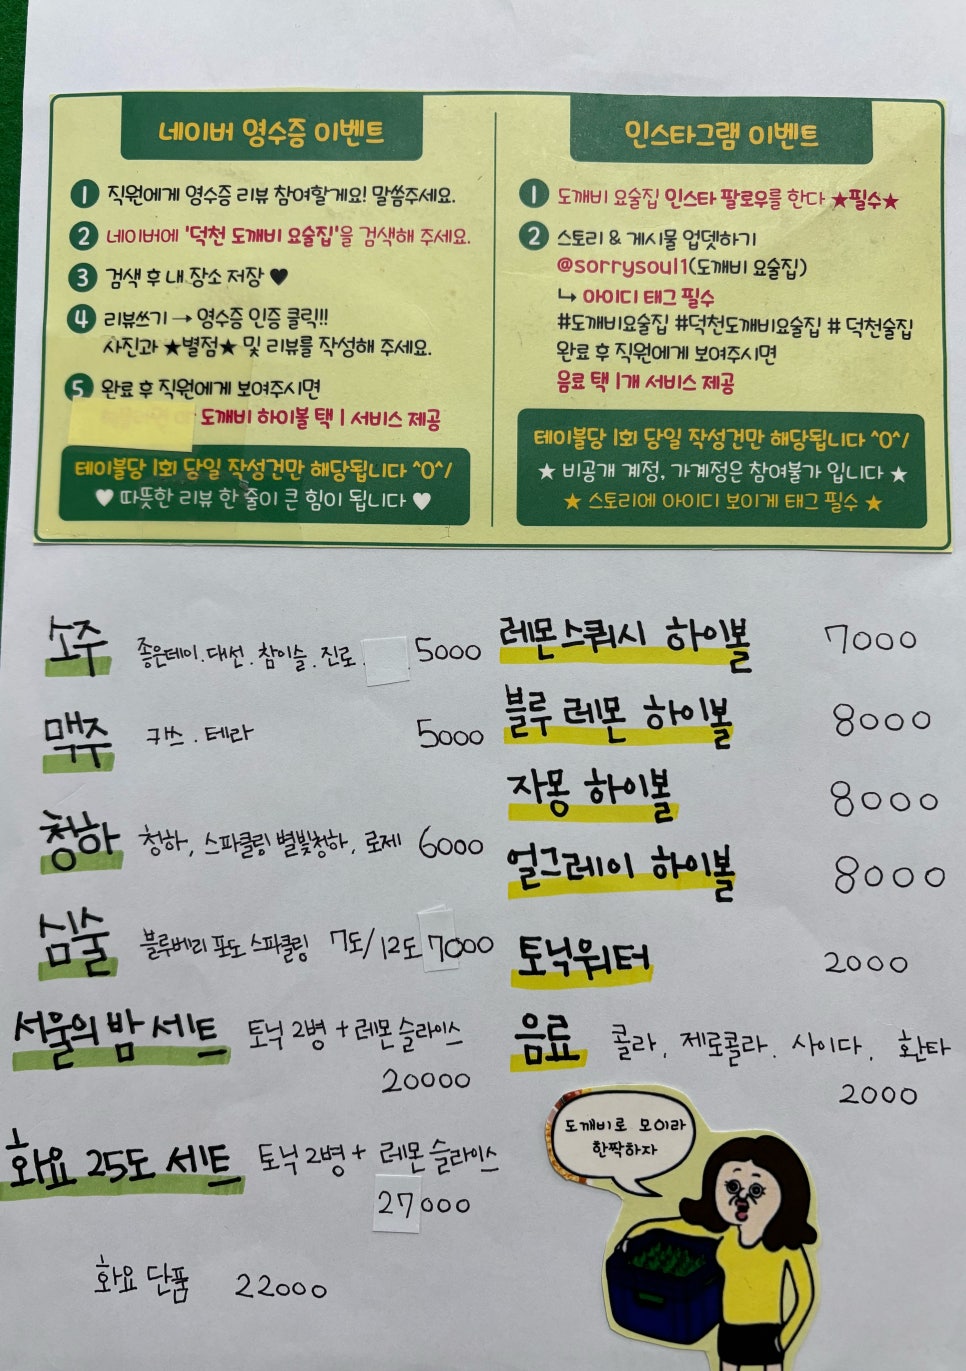 네이버 영수증 이벤트
1 직원에게 영수증 리뷰 참여할게요! 말씀주세요.
2 네이버에 '덕천 도깨비 요술집'을 검색해 주세요.
3 검색 후 내 장소 저장 ♥
4 리뷰쓰기 → 영수증 인증 클릭!!!
사진과 ★별점★ 및 리뷰를 작성해 주세요.
5 완료 후 직원에게 보여주시면
도깨비 하이볼 택 1 서비스 제공
테이블당 1회 당일 작성건만 해당됩니다 ^0^/
♥ 따뜻한 리뷰 한 줄이 큰 힘이 됩니다 ♥
인스타그램 이벤트
1 도깨비 요술집 인스타 팔로우를 한다 ★필수★
2 스토리 & 게시물 업뎃하기
@sorrysoul1(도깨비 요술집)
↳ 아이디 태그 필수
#도깨비요술집 #덕천도깨비요술집 # 덕천술집
완료 후 직원에게 보여주시면
음료 택 1개 서비스 제공
테이블당 1회 당일 작성건만 해당됩니다 ^0^/
★ 비공개 계정, 가계정은 참여불가 입니다 ★
★ 스토리에 아이디 보이게 태그 필수 ★
소주 좋은데이. 대선. 참이슬. 진로. 5000
맥주 카스. 테라 5000
청하 청하, 스파클링 별빛청하, 로제 6000
심술 블루베리 포도 스파클링 7도/12도 7000
서울의 밤 세트 토닉 2병 + 레몬 슬라이스
20000
화요 25도 세트 토닉 2병 + 레몬 슬라이스
27000
화요 단품 22000
레몬스쿼시 하이볼 7000
블루 레몬 하이볼 8000
자몽 하이볼 8000
얼그레이 하이볼 8000
토닉워터 2000
음료 콜라, 제로콜라. 사이다, 환타
2000
도깨비로 모이라
한짝하자